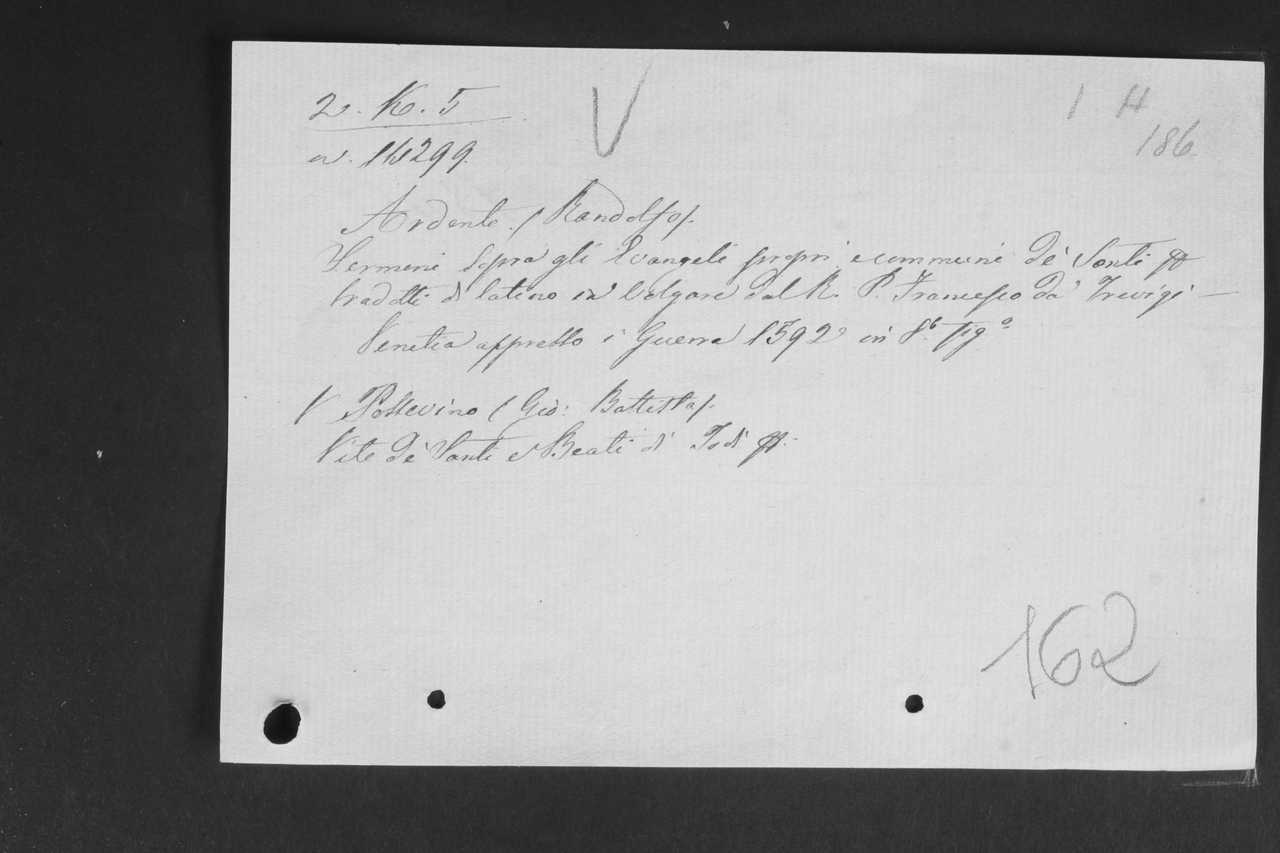 2. K. 5
V
1 H
186.
n. 16299.
Ardente. (Randolfo).
Sermoni Sopra gli Evangeli propri, e communi de' Santi &
tradotti di latino in volgare dal R. P. Francesco da Trevigi —
Venetia appresso i Guerra 1592 in 8.° fig.°
V Possevino (Gio: Battista).
Vite de' Santi e Beati di Todi &.
162